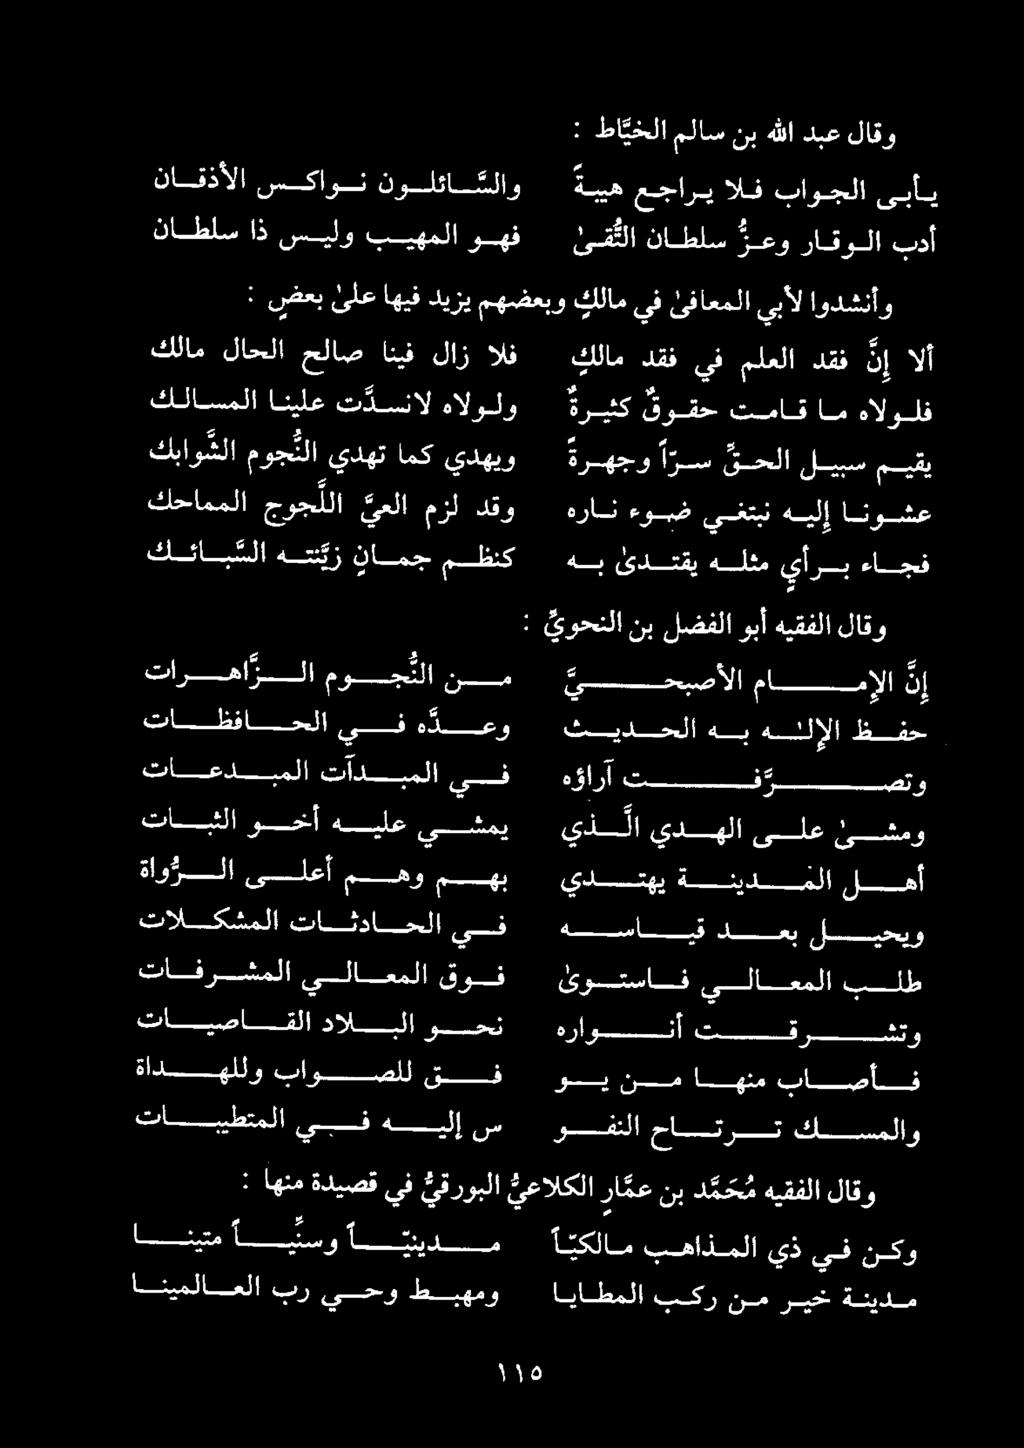 وقال عبد الله بن سالم الخيَّاط :
يـأبـى الجـواب فـلا يـراجـع هيبةً والسَّـائلـون نـواكـس الأذقـان
أدب الـوقـار وعـزُّ سلطـان التُّقـىٰ فهـو المهيـب وليـس ذا سلطـان
وأنشدوا لأبي المعافىٰ في مالكٍ وبعضهم يزيد فيها علىٰ بعضٍ :
ألا إنَّ فقد العلم في فقد مالكٍ فلا زال فينا صالح الحال مالك
فلـولاه مـا قـامـت حقـوقٌ كثيـرةٌ ولـولاه لانسدَّت علينـا المسـالـك
يقيـم سبيـل الحـقِّ سـراً وجهـرةً ويهدي كما تهدي النُّجوم الشَّوابك
عشـونـا إليـه نبتغـي ضـوء نـاره وقد لزم العيَّ اللَّجوج المماحك
فجـاء بـرأيٍ مثلـه يقتـدىٰ بـه كنظـم جمـانٍ زيَّنتـه السَّبـائـك
وقال الفقيه أبو الفضل بن النحويِّ :
إنَّ الإمـام الأصبحـيَّ مـن النُّجـوم الـزَّاهـرات
حفـظ الإلـٰه بـه الحـديـث وعـدَّه فـي الحـافظـات
وتصـرَّفـت آراؤه فـي المبـدآت المبـدعـات
ومشـىٰ علـى الهـدي الَّـذي يمشـي عليـه أخـو الثبـات
أهـل المـدينـة يهتـدي بهـم وهـم أعلـى الـرُّواة
ويحيـل بعـد قيـاسـه فـي الحـادثـات المشكـلات
طلـب المعـالـي فـاستـوىٰ فـوق المعـالـي المشـرفـات
وتشـرقـت أنـواره نحـو البـلاد القـاصيـات
فـأصـاب منهـا مـن يـو فـق للصـواب وللهـداة
والمسـك تـرتـاح النفـو س إليـه فـي المتطيبـات
وقال الفقيه مُحَمَّد بن عمَّارٍ الكلاعيُّ البورقيُّ في قصيدة منها :
وكن فـي ذي المـذاهـب مـالكيّـاً مـدينيّـاً وسنِّيـاً متينـا
مـدينـة خيـر مـن ركـب المطـايـا ومهبـط وحـي رب العـالمينـا
١١٥